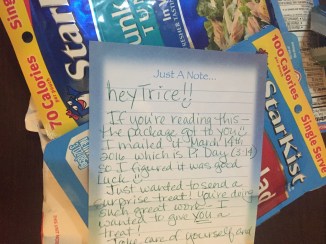 Just A Note...
hey Trice!!
If you're reading this—
the package got to you
I mailed it March 14th
2016 which is Pi Day (3.14)
so I figured it was good
luck.
Just wanted to send a
surprise treat! You're doing
such great work - I
wanted to give you a
treat!
Take care of yourself, and
Single
70 CALORIES
StarKist
StarKist
100 CALORIES
Single Serve